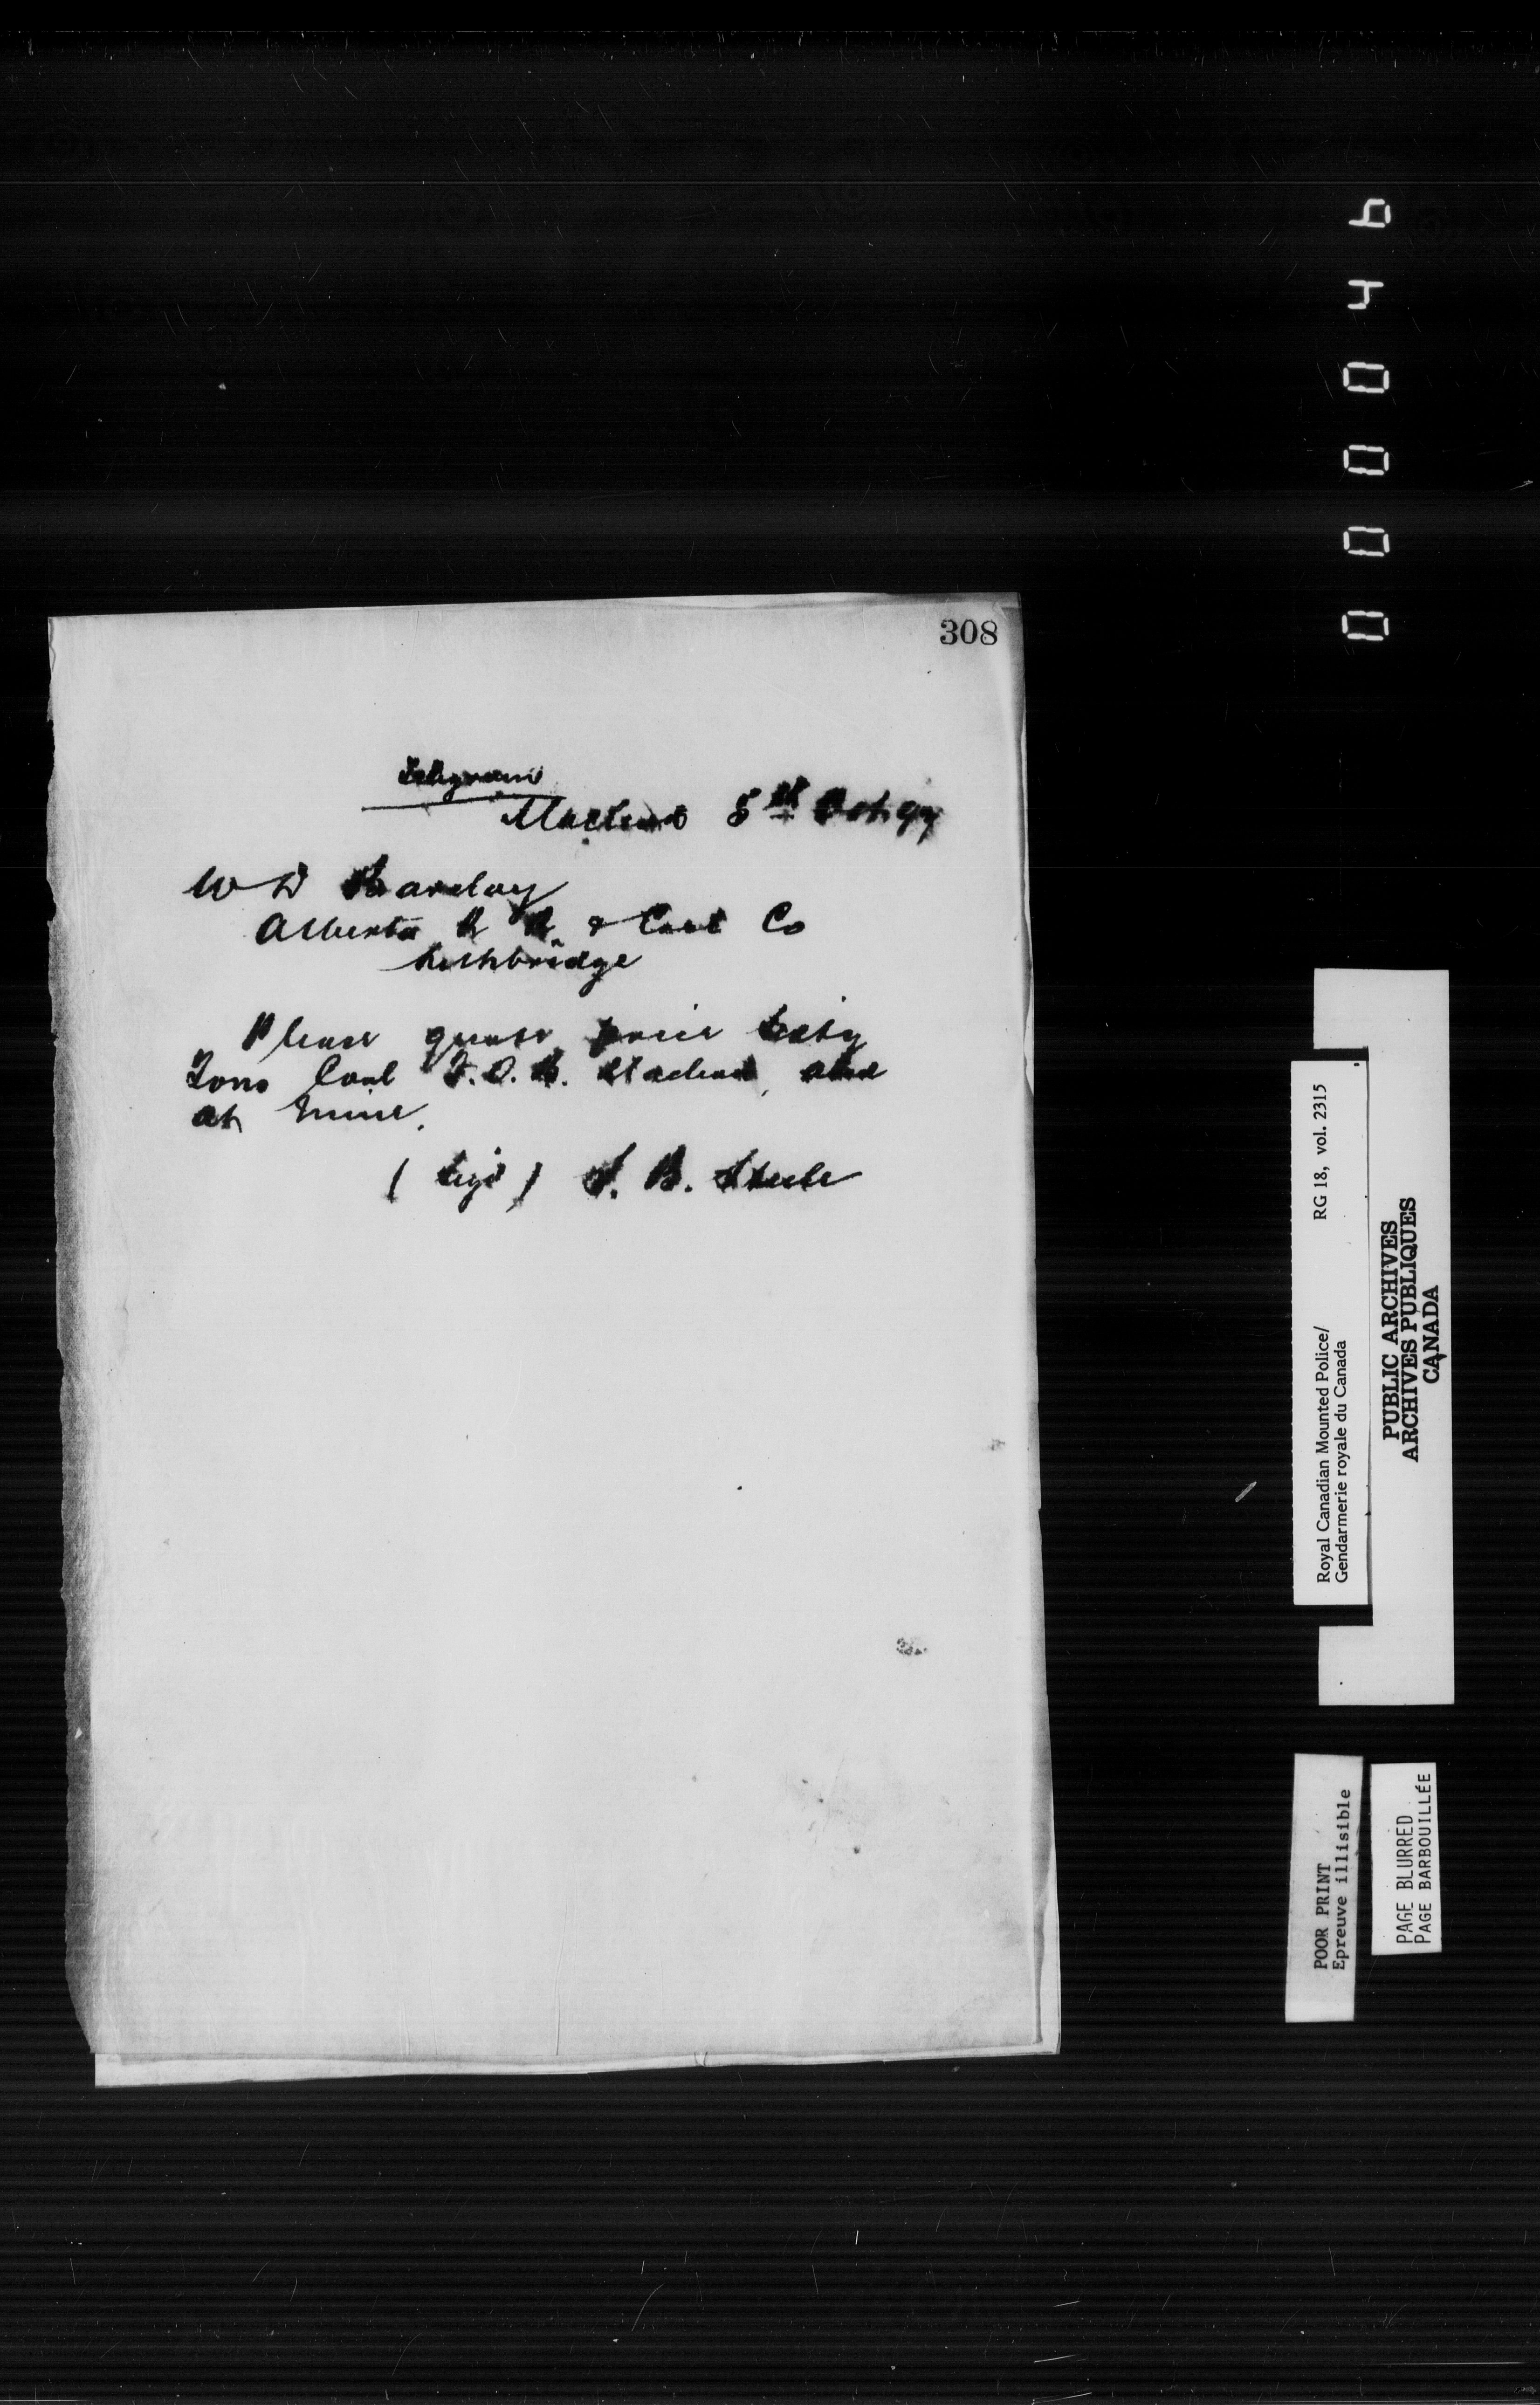 308
Telegram
Macleod 5th Oct 97
W D Barclay
Alberta R R & Coal Co
Lethbridge
Please quote price sixty
Tons Coal F.O.B. Macleod, also
at mine.
(Sgd) S. B. Steele
000049
RG 18, vol. 2315
Royal Canadian Mounted Police/
Gendarmerie royale du Canada
PUBLIC ARCHIVES
ARCHIVES PUBLIQUES
CANADA
POOR PRINT
Epreuve illisible
PAGE BLURRED
PAGE BARBOUILLÉE